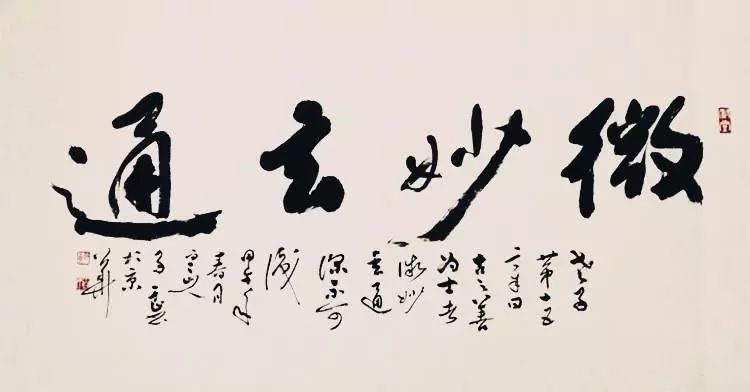 微妙玄通
老子
第十五
章曰
古之善
为士者
微妙
玄通
深不可
识
甲午年
春月
於京